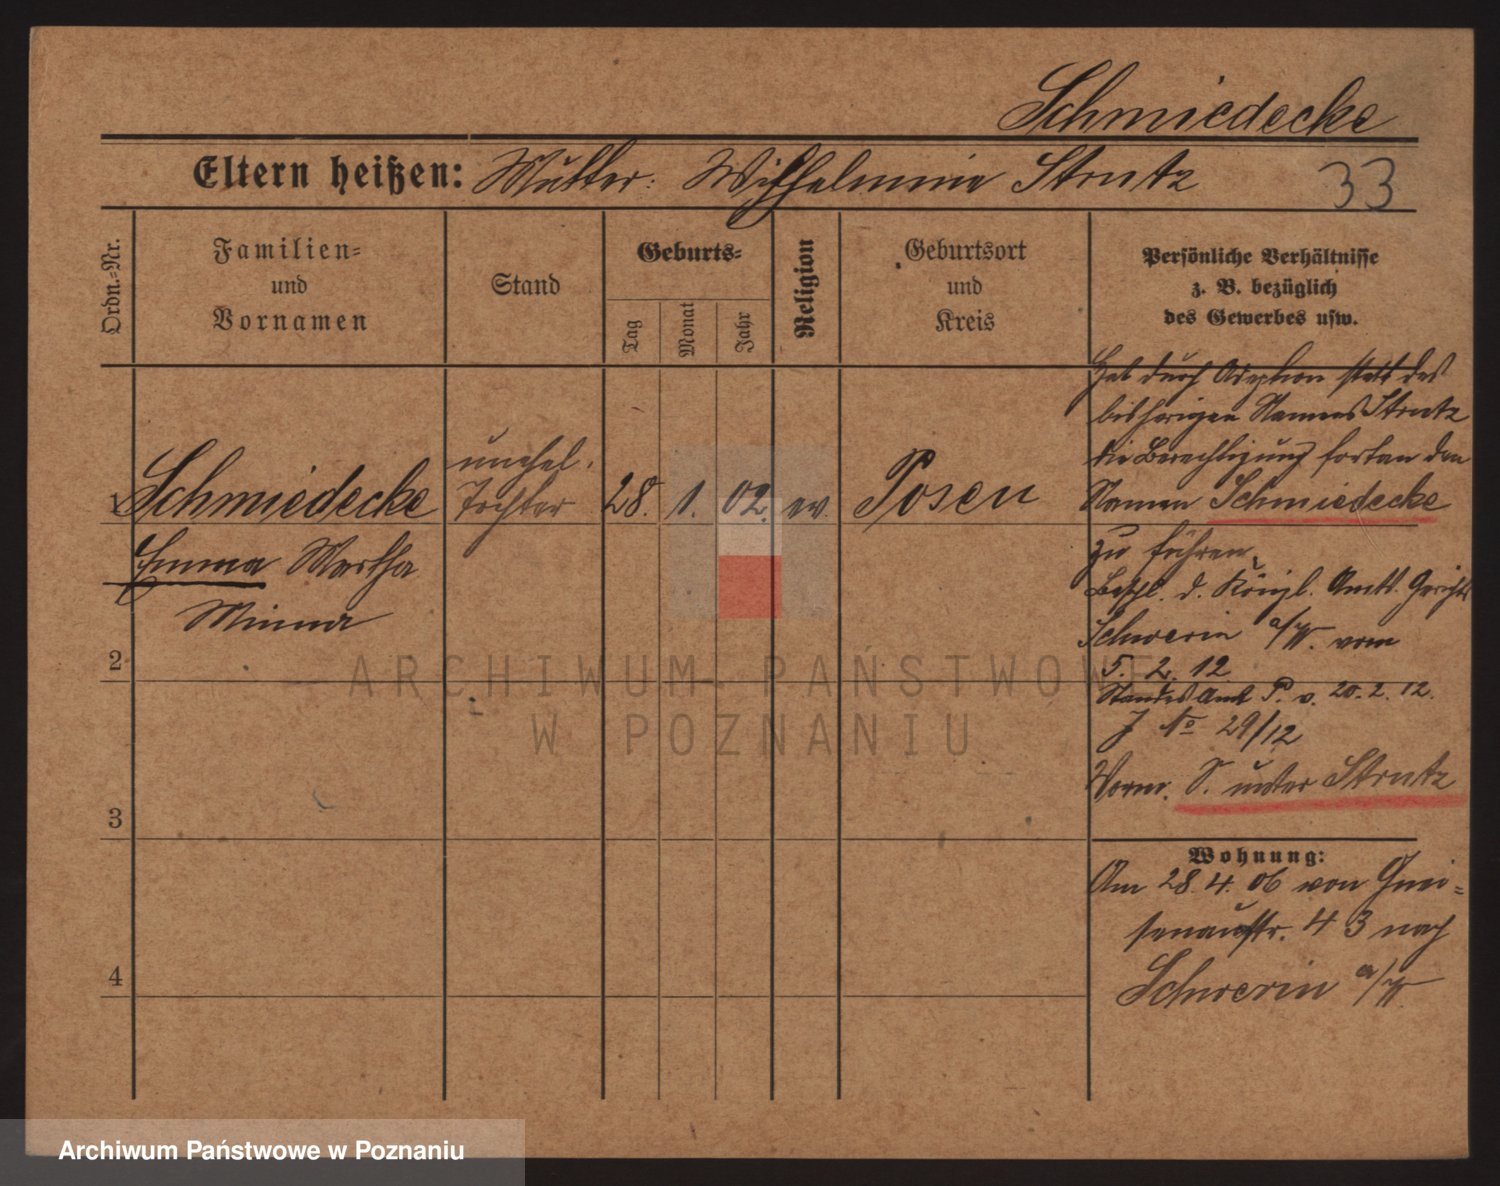 Schmiedecke
Eltern heißen: Mutter: Wilhelmine Strutz 33
Ordn.-Nr.
Familien-
und
Vornamen
Stand
Geburts-
Tag
Monat
Jahr
Religion
Geburtsort
und
Kreis
Persönliche Verhältnisse
z. B. bezüglich
des Gewerbes usw.
1 Schmiedecke
Emma Martha
Minna
unehel.
Tochter
28. 1. 02. ev.
Posen
Hat durch Adoption statt des
bisherigen Namens Strutz
die Berechtigung fortan den
Namen Schmiedecke
zu führen,
Beschl. d. Königl. Amts. Gerichts
Schwerin a/W. vom
5. 2. 12
Standes Amt P. v. 20. 2. 12.
J No 29/12
Vorm. S. unter Strutz
2
3
4
Wohnung:
Am 28. 4. 06 von Gnei-
senaustr. 4 3 nach
Schwerin a/W.
ARCHIWUM PAŃSTWOWE
W POZNANIU
Archiwum Państwowe w Poznaniu